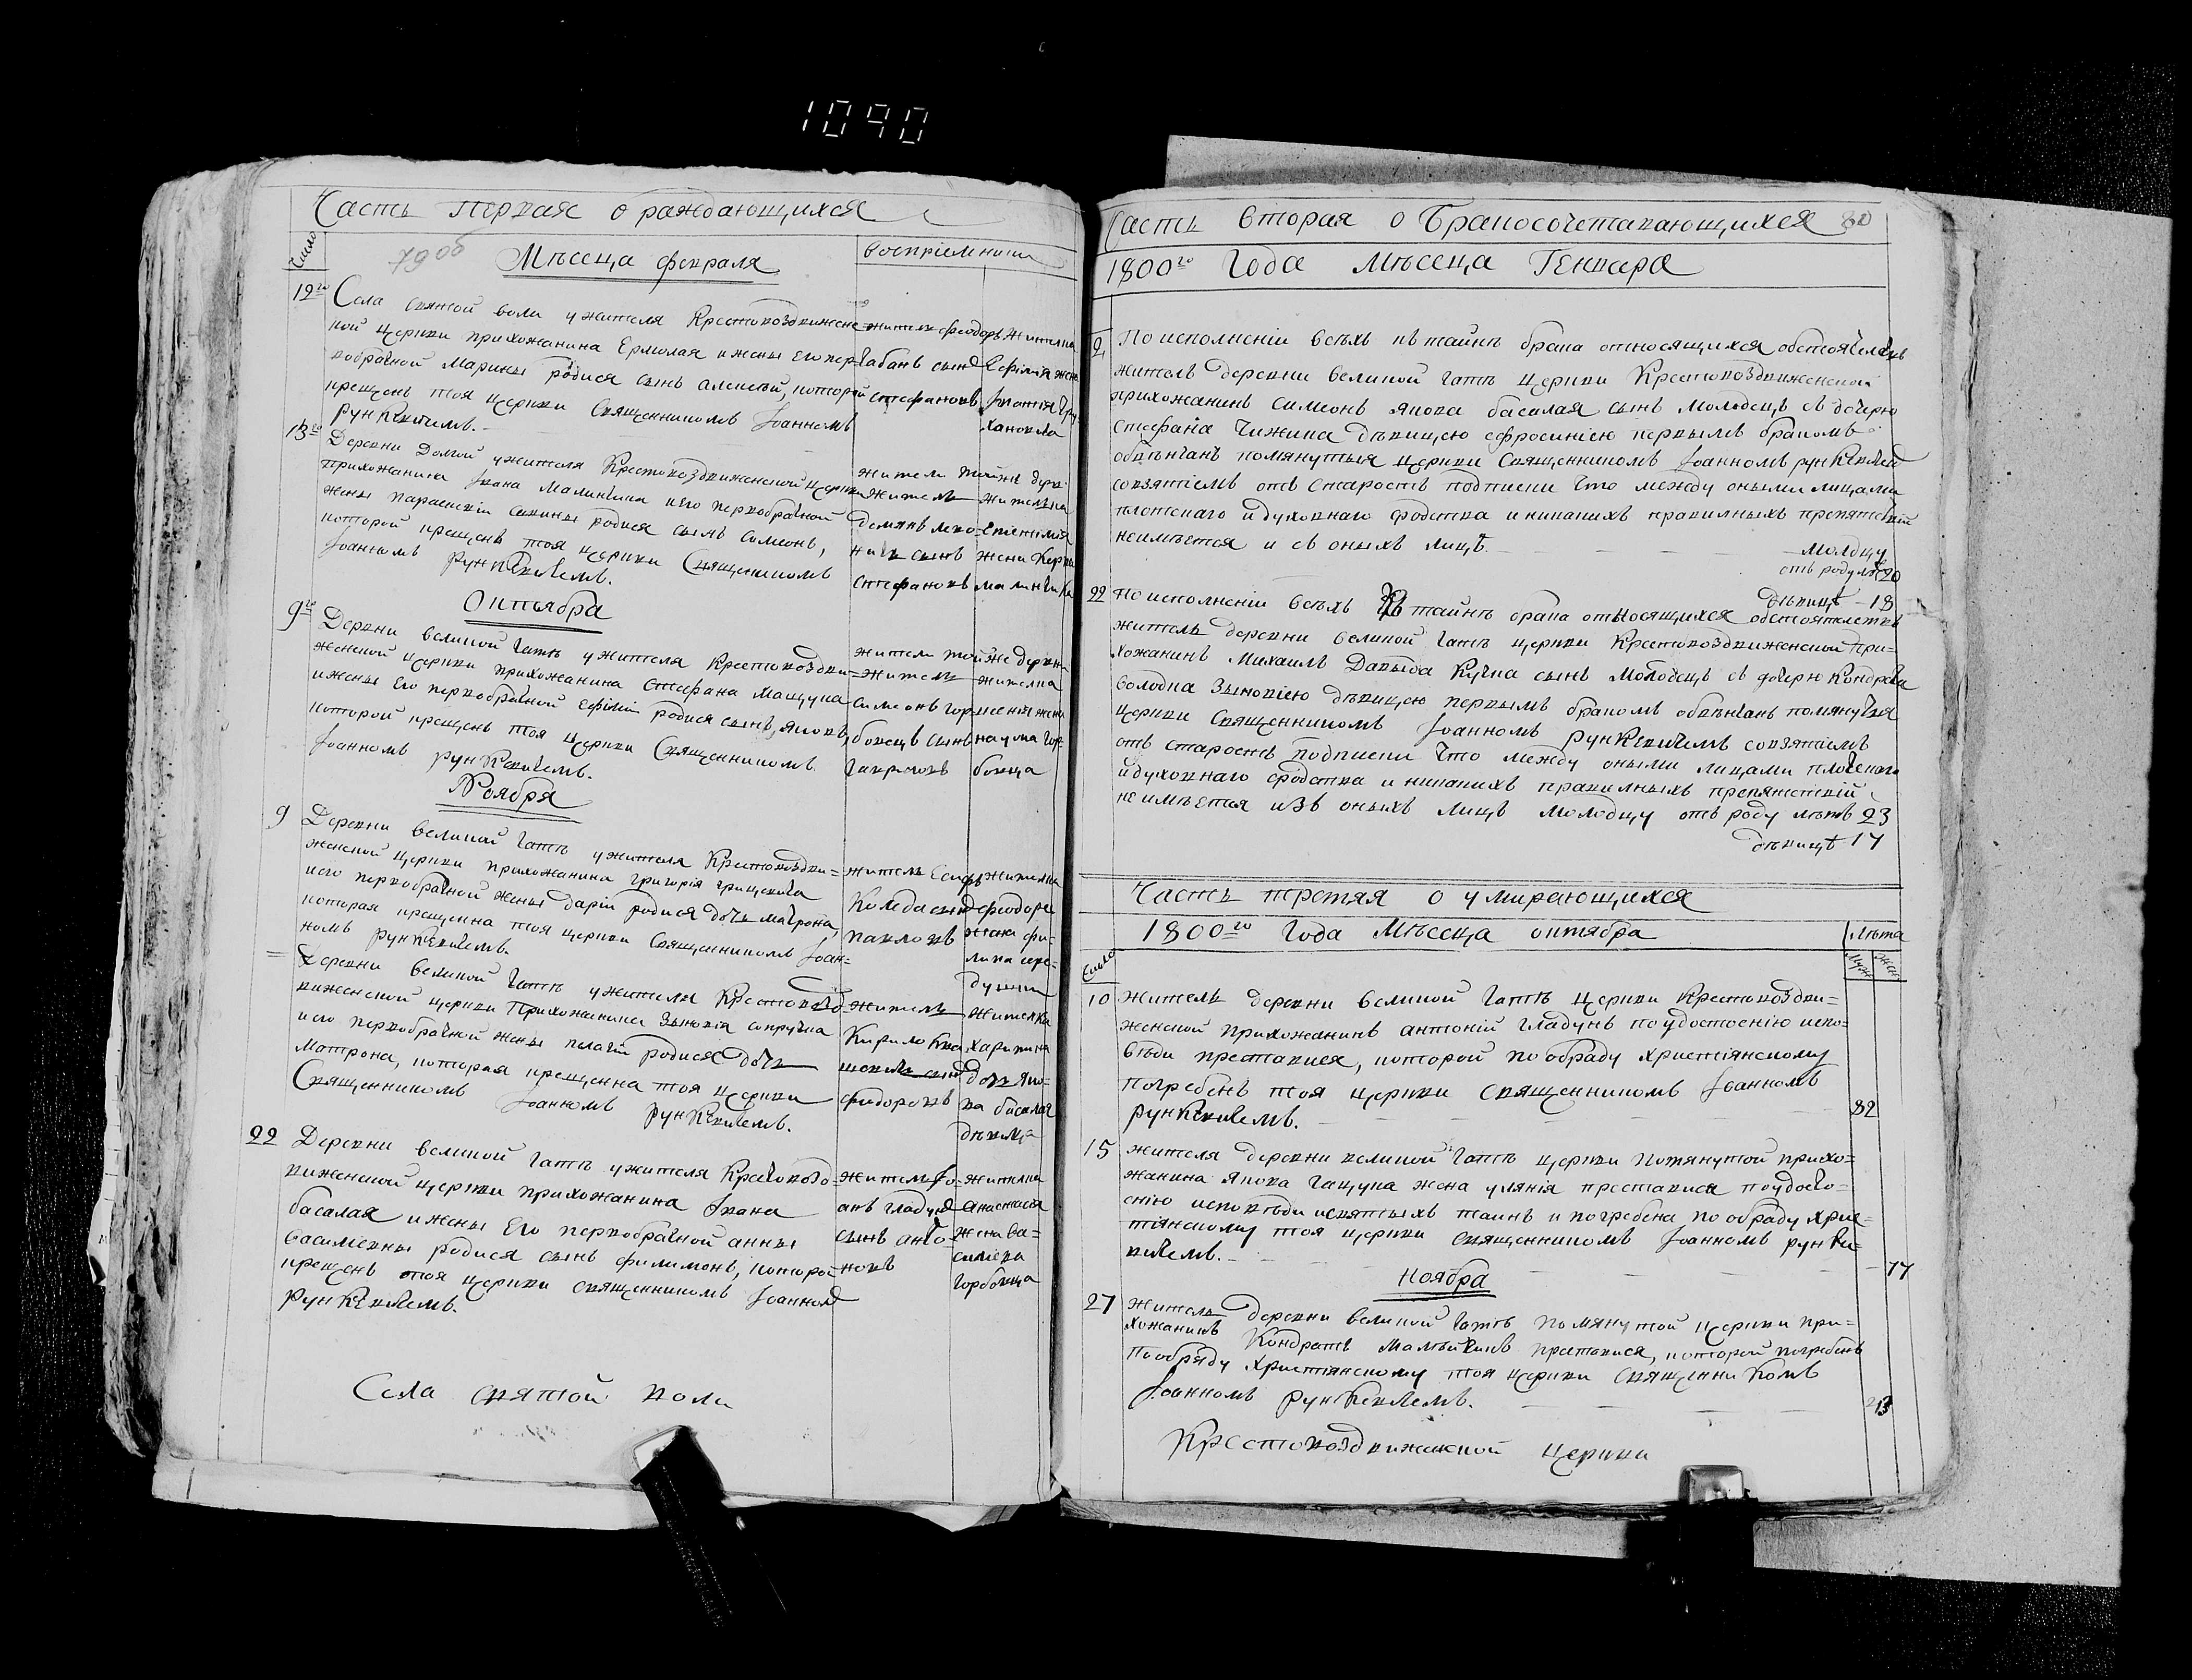 1090
Часть Первая о раждающихся
Число
79об
Мѣсеца февраля
восприемники
12го
Села святой воли у жителя Крестовоздвижене=
ной церкви прихожанина Ермолая и жены Его пер=
вобрачной Марины родися сынъ алексѣй, которой
крещенъ тоя церкви Священникомъ Іоанномъ
рункевичемъ.
житель феодоръ
чабанъ сынъ
стефановъ
жителка
Евфимія жена
Игнатія
хановича
13го
Деревни Долгой у жителя Крестовоздвиженской церкви
прихожанина Ивана Малинчика и его первобрачной
жены параскевіи савины родися сынъ симеонъ,
которой крещенъ тоя церкви Священникомъ
Іоанномъ Рункевичемъ.
жители тойже дерев
житель
Демянъ
сынъ
стефановъ
жителька
жена
малинчика
Октября
9го
Деревни великой гать у жителя Крестовоздви=
женской церкви прихожанина Стефана Мацука
и жены Его первобрачной Евфиміи родися сынъ, яковъ,
которой крещенъ тоя церкви Священникомъ
Іоанномъ рункевичемъ.
жители тойже деревни
житель
симеонъ гор=
бовецъ сынъ
гавриловъ
жителка
ксенія жена
наума гор=
бовца
Ноября
9
Деревни великой гать у жителя Крестовоздви=
женской церкви прихожанина григорія грицкевича
и его первобрачной жены даріи родися дочь матрона,
которая крещенна тоя церкви Священникомъ Іоан=
номъ рункевичемъ.
житель
Коляда сынъ
павловъ
жителка
феодора
жена фи=
липа
=
Деревни великой гать у жителя Крестовозд=
виженской церкви Прихожанина Зыновія
и его первобрачной жены пелагіи родися дочь
Матрона, которая крещенна тоя церкви
Священникомъ Іоанномъ рункевичемъ.
житель
Кирило
сынъ
феодоровъ
жителка
харитина
дочь яко=
ва басалая
дѣвица
22
Деревни великой гать у жителя Крестовозд=
виженской церкви прихожанина Ивана
басалая и жены Его первобрачной анны
василіевны родися сынъ филимонъ, которой
крещенъ тоя церкви священникомъ Іоанномъ
рункевичемъ.
житель Іо=
анъ гладунъ
сынъ анто=
новъ
жителка
анастасія
жена ва=
силіева
горбовца
Села святой воли
Часть вторая о Бракосочетавающихся 80
1800го Года Мѣсеца Генваря
2
По исполненіи всѣхъ къ тайнѣ брака относящихся обстоятелствъ
житель деревни великой гать церкви Крестовоздвиженской
прихожанинъ симеонъ якова басалая сынъ молодецъ съ дочерю
стефана Чижика дѣвицею ефросиніею первымъ бракомъ
обвѣнчанъ помянутыя церкви Священникомъ Іоанномъ рункевичемъ
совзятіемъ отъ старостъ подписки что между оными лицами
плотскаго и духовнаго сродства и никакихъ правилныхъ препятствій
неимѣется и съ оныхъ лицъ.
молодцу
отъ роду лѣтъ 20
дѣвицѣ - 18
22
По исполненіи всѣхъ къ тайнѣ брака относящихся обстоятелствъ
житель деревни великой гать церкви Крестовоздвиженской при=
хожанинъ Михаилъ Давыда Кучка сынъ молодецъ съ дочерю Кондрата
володка Зыновіею дѣвицею первымъ бракомъ обвѣнчанъ помянутыя
церкви Священникомъ Іоанномъ рункевичемъ совзятіемъ
отъ старостъ подписки что между оными лицами плотскаго
и духовнаго сродства и никакихъ правилныхъ препятствій
неимѣется изъ оныхъ лицъ молодцу отъ роду лѣтъ 23
дѣвицѣ 17
Часть третяя о умирающихся
1800го Года Мѣсеца октября
Лѣта
Число
Муж
Жен
10
житель деревни великой гать церкви Крестовоздви=
женской прихожанинъ антоній гладунъ по удостоенію испо=
вѣди преставися, которой по обраду христіянскому
погребенъ тоя церкви священникомъ Іоанномъ
рункевичемъ.
82
15
жителя деревни великой гать церкви помянутой прихо=
жанина якова гацука жена улянія преставися по удосто=
енію исповѣди и святыхъ таинъ и погребена по обраду хрис=
тіянскому тоя церкви священникомъ Іоанномъ рунке=
вичемъ.
77
Ноября
27
житель деревни великой гать помянутой церкви при=
хожанинъ Кондратъ преставися, которой погребенъ
по обряду христіянскому тоя церкви священникомъ
Іоанномъ рункевичемъ.
Крестовоздвиженской церкви